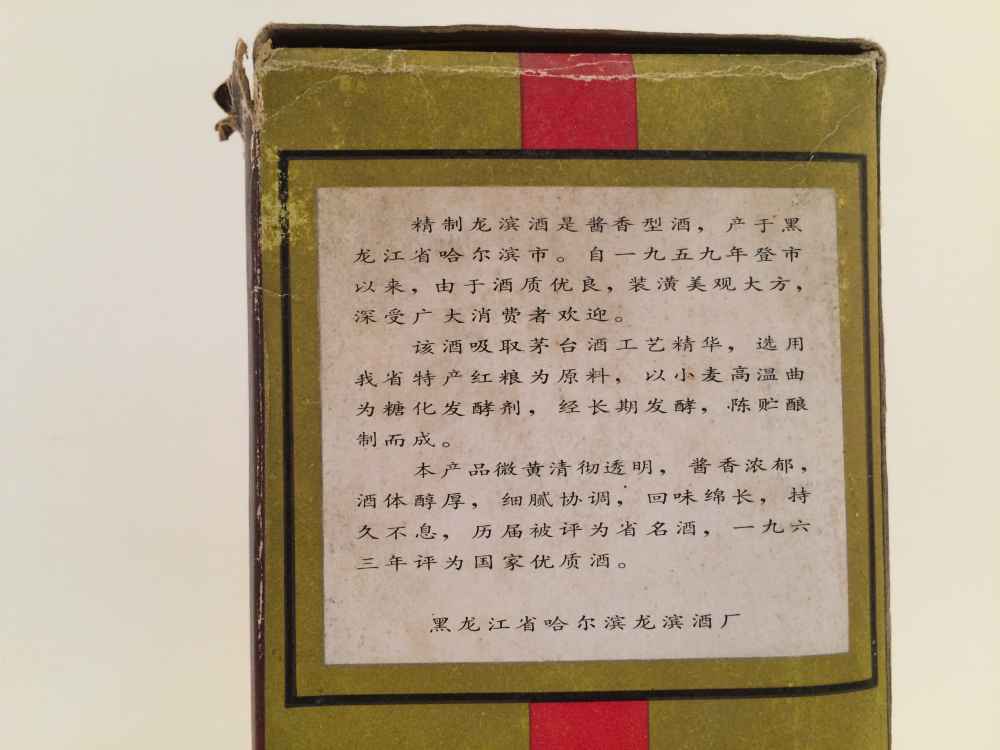 精制龙滨酒是酱香型酒，产于黑
龙江省哈尔滨市。自一九五九年登市
以来，由于酒质优良，装潢美观大方，
深受广大消费者欢迎。
该酒吸取茅台酒工艺精华，选用
我省特产红粮为原料，以小麦高温曲
为糖化发酵剂，经长期发酵，陈贮酿
制而成。
本产品微黄清彻透明，酱香浓郁，
酒体醇厚，细腻协调，回味绵长，持
久不息，历届被评为省名酒，一九六
三年评为国家优质酒。
黑龙江省哈尔滨龙滨酒厂